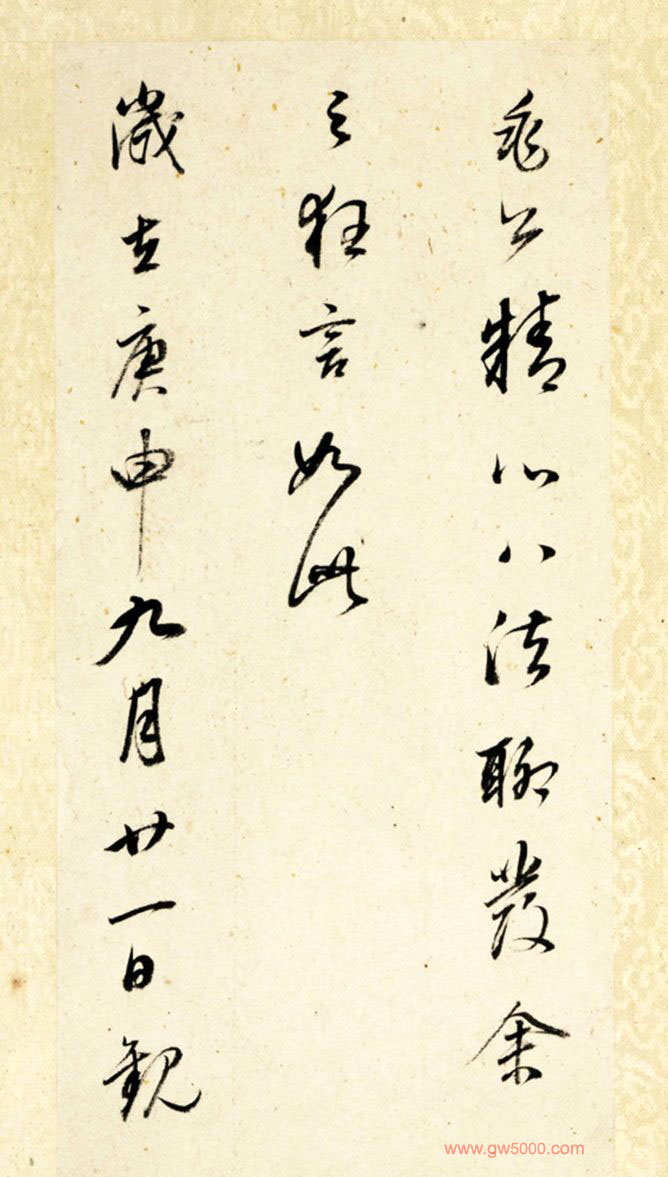 公精心八法聊發余
之狂言如此
歲在庚申九月廿一日觀
www.gw5000.com